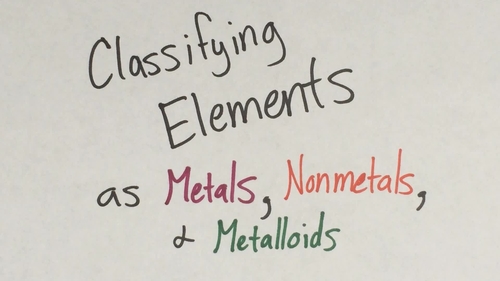 Classifying
Elements
as Metals, Nonmetals,
& Metalloids